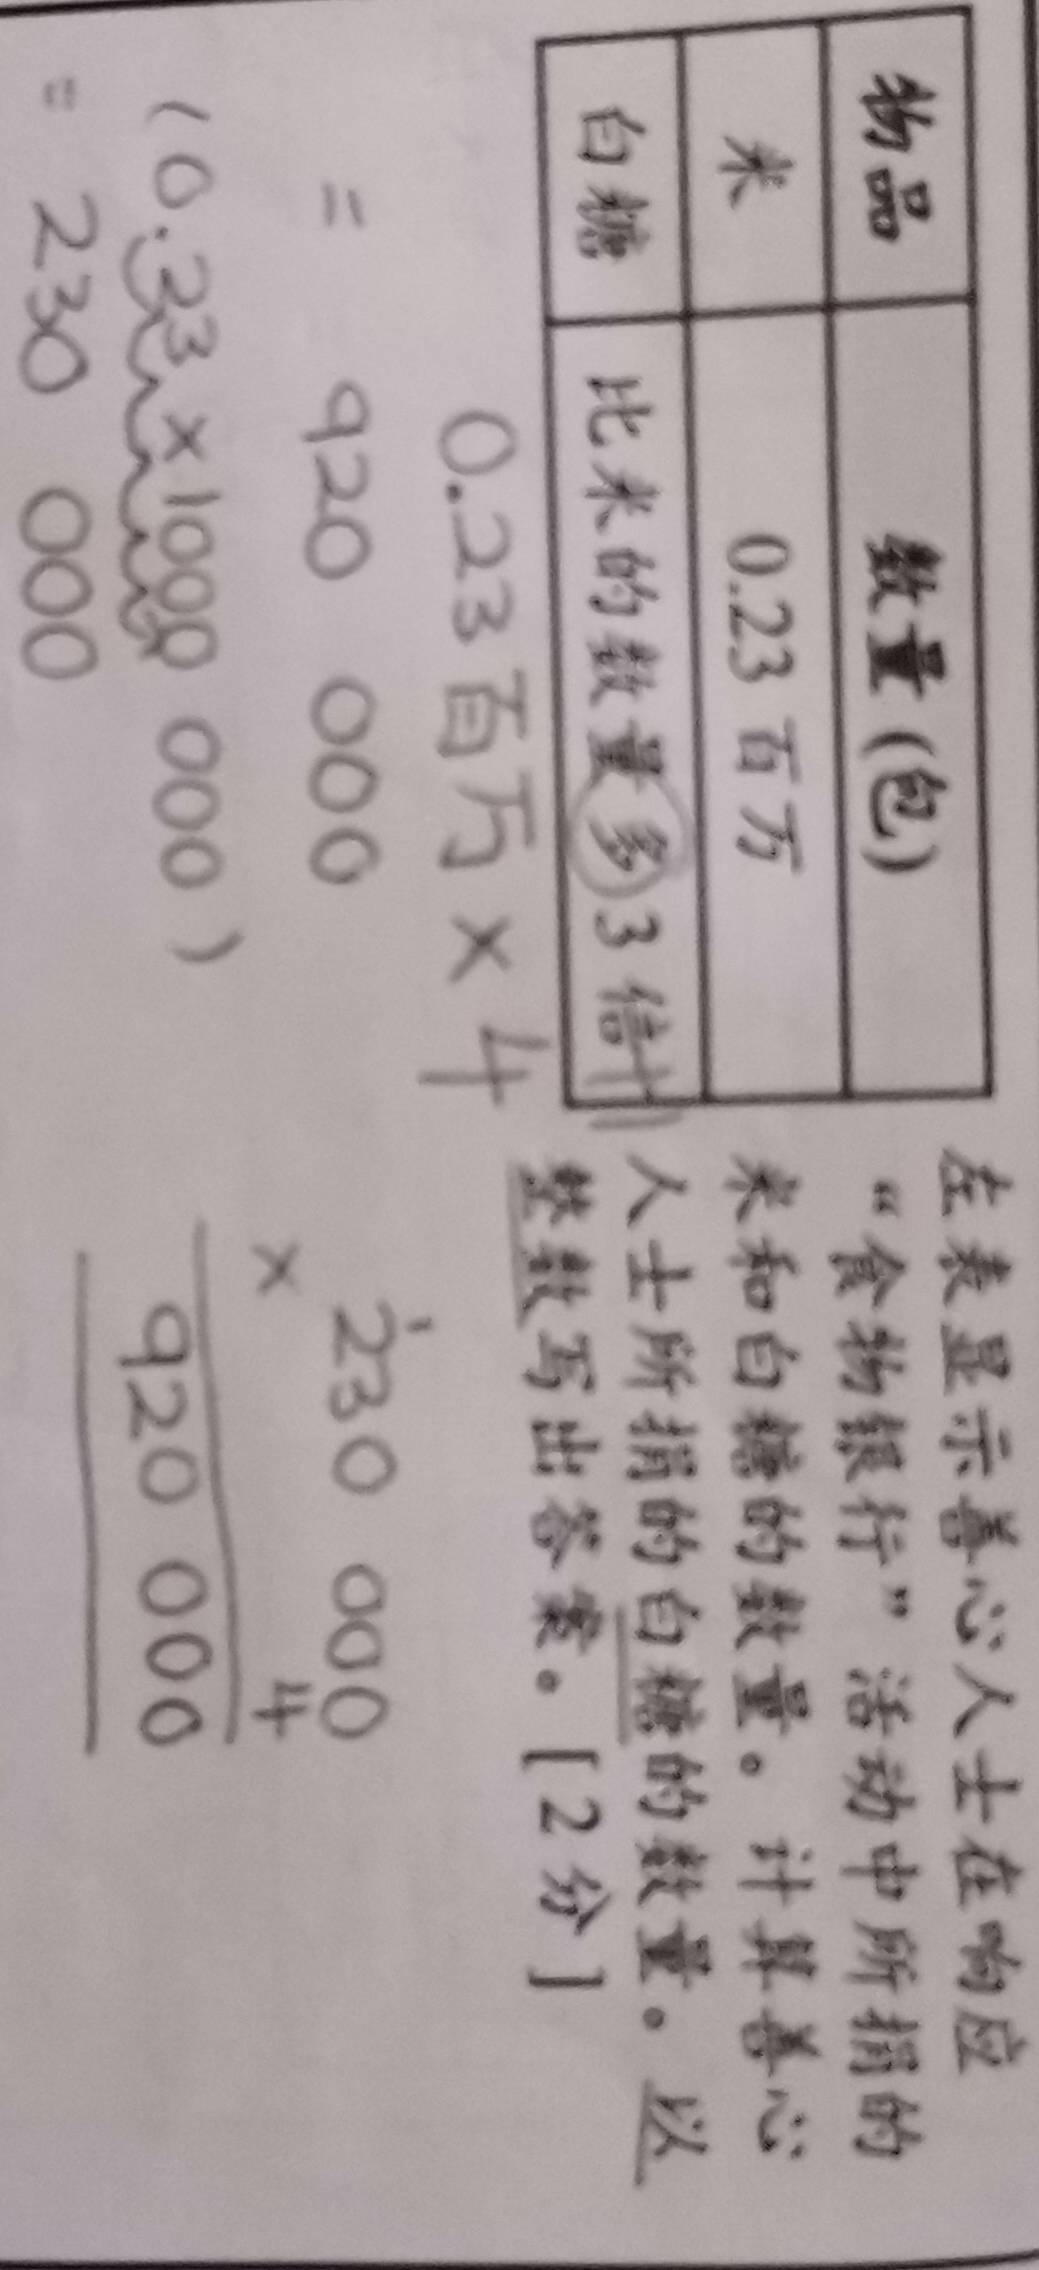 物品 数量(包)
米 0.23 百万
白糖 比米的数量多3倍
左表显示善心人士在响应
“食物银行”活动中所捐的
米和白糖的数量。计算善心
人士所捐的白糖的数量。以
整数写出答案。[2分]
0.23百万×4
= 920 000
(0.23×1000 000)
= 230 000
1
230 000
× 4
920 000